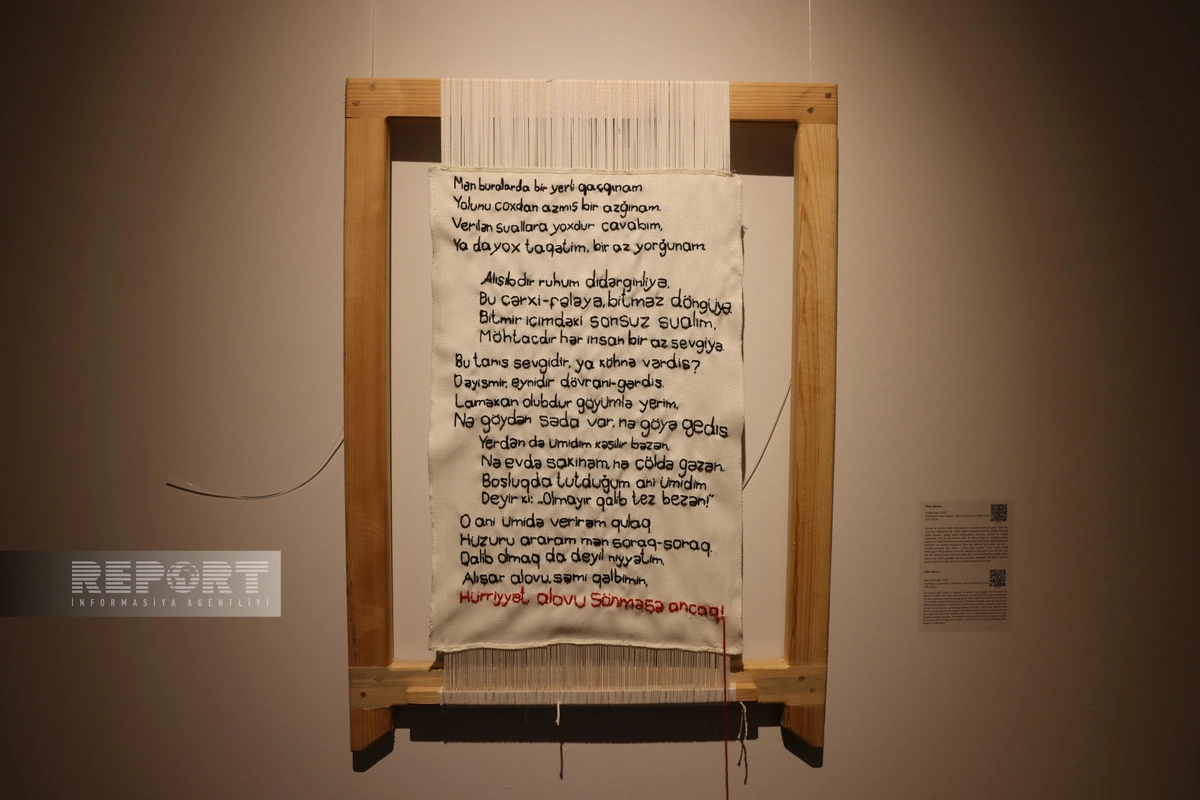 Mən buralarda bir yerli qaçqınam
Yolunu çoxdan azmış bir azğınam.
Verilən suallara yoxdur cavabım,
Ya da yox taqətim, bir az yorğunam
Alışıbdır ruhum didərginliyə,
Bu çərxi-fələyə, bitməz döngüyə
Bitmir içimdəki sonsuz sualım,
Möhtacdır hər insan bir az sevgiyə.
Bu tanış sevgidir, ya köhnə vərdiş?
Dəyişmir, eynidir dövrani-gərdiş.
Laməkan olubdur göyümlə yerim,
Nə göydən səda var, nə göyə gediş
Yerdən də ümidim kəsilir bəzən,
Nə evdə sakinəm, nə çöldə gəzən.
Boşluqda tutduğum ani ümidim
Deyir ki: „Olmayır qalib tez bezən!"
O ani ümidə verirəm qulaq
Hüzuru araram mən soraq-soraq.
Qalib olmaq da deyil niyyətim,
Alışar alovu, şəmi qəlbimin,
Hürriyyət alovu Sönməsə ancaq!
REPORT
İNFORMASİYA AGENTLİYİ